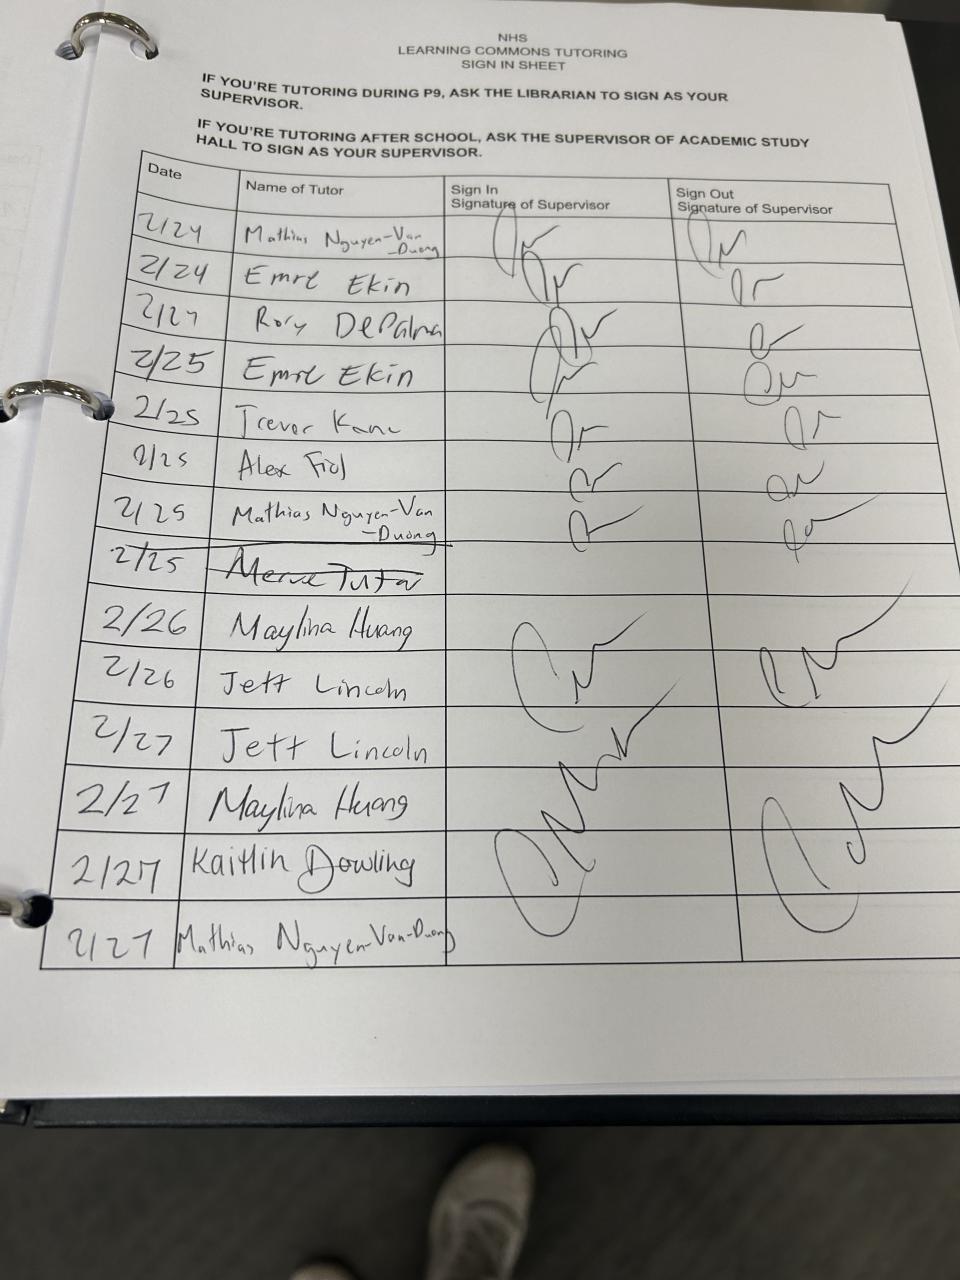 NHS
LEARNING COMMONS TUTORING
SIGN IN SHEET
IF YOU'RE TUTORING DURING P9, ASK THE LIBRARIAN TO SIGN AS YOUR
SUPERVISOR.
IF YOU'RE TUTORING AFTER SCHOOL, ASK THE SUPERVISOR OF ACADEMIC STUDY
HALL TO SIGN AS YOUR SUPERVISOR.
Date Name of Tutor Sign In Sign Out
Signature of Supervisor Signature of Supervisor
2/24 Mathias Nguyen-Van
-Duong
2/24 Emre Ekin
2/27 Rory DePalma
2/25 Emre Ekin
2/25 Trevor Kane
2/25 Alex Fiol
2/25 Mathias Nguyen-Van
-Duong
2/25 Merve Tutar
2/26 Maylina Huang
2/26 Jett Lincoln
2/27 Jett Lincoln
2/27 Maylina Huang
2/27 Kaitlin Dowling
2/27 Mathias Nguyen-Van-Duong